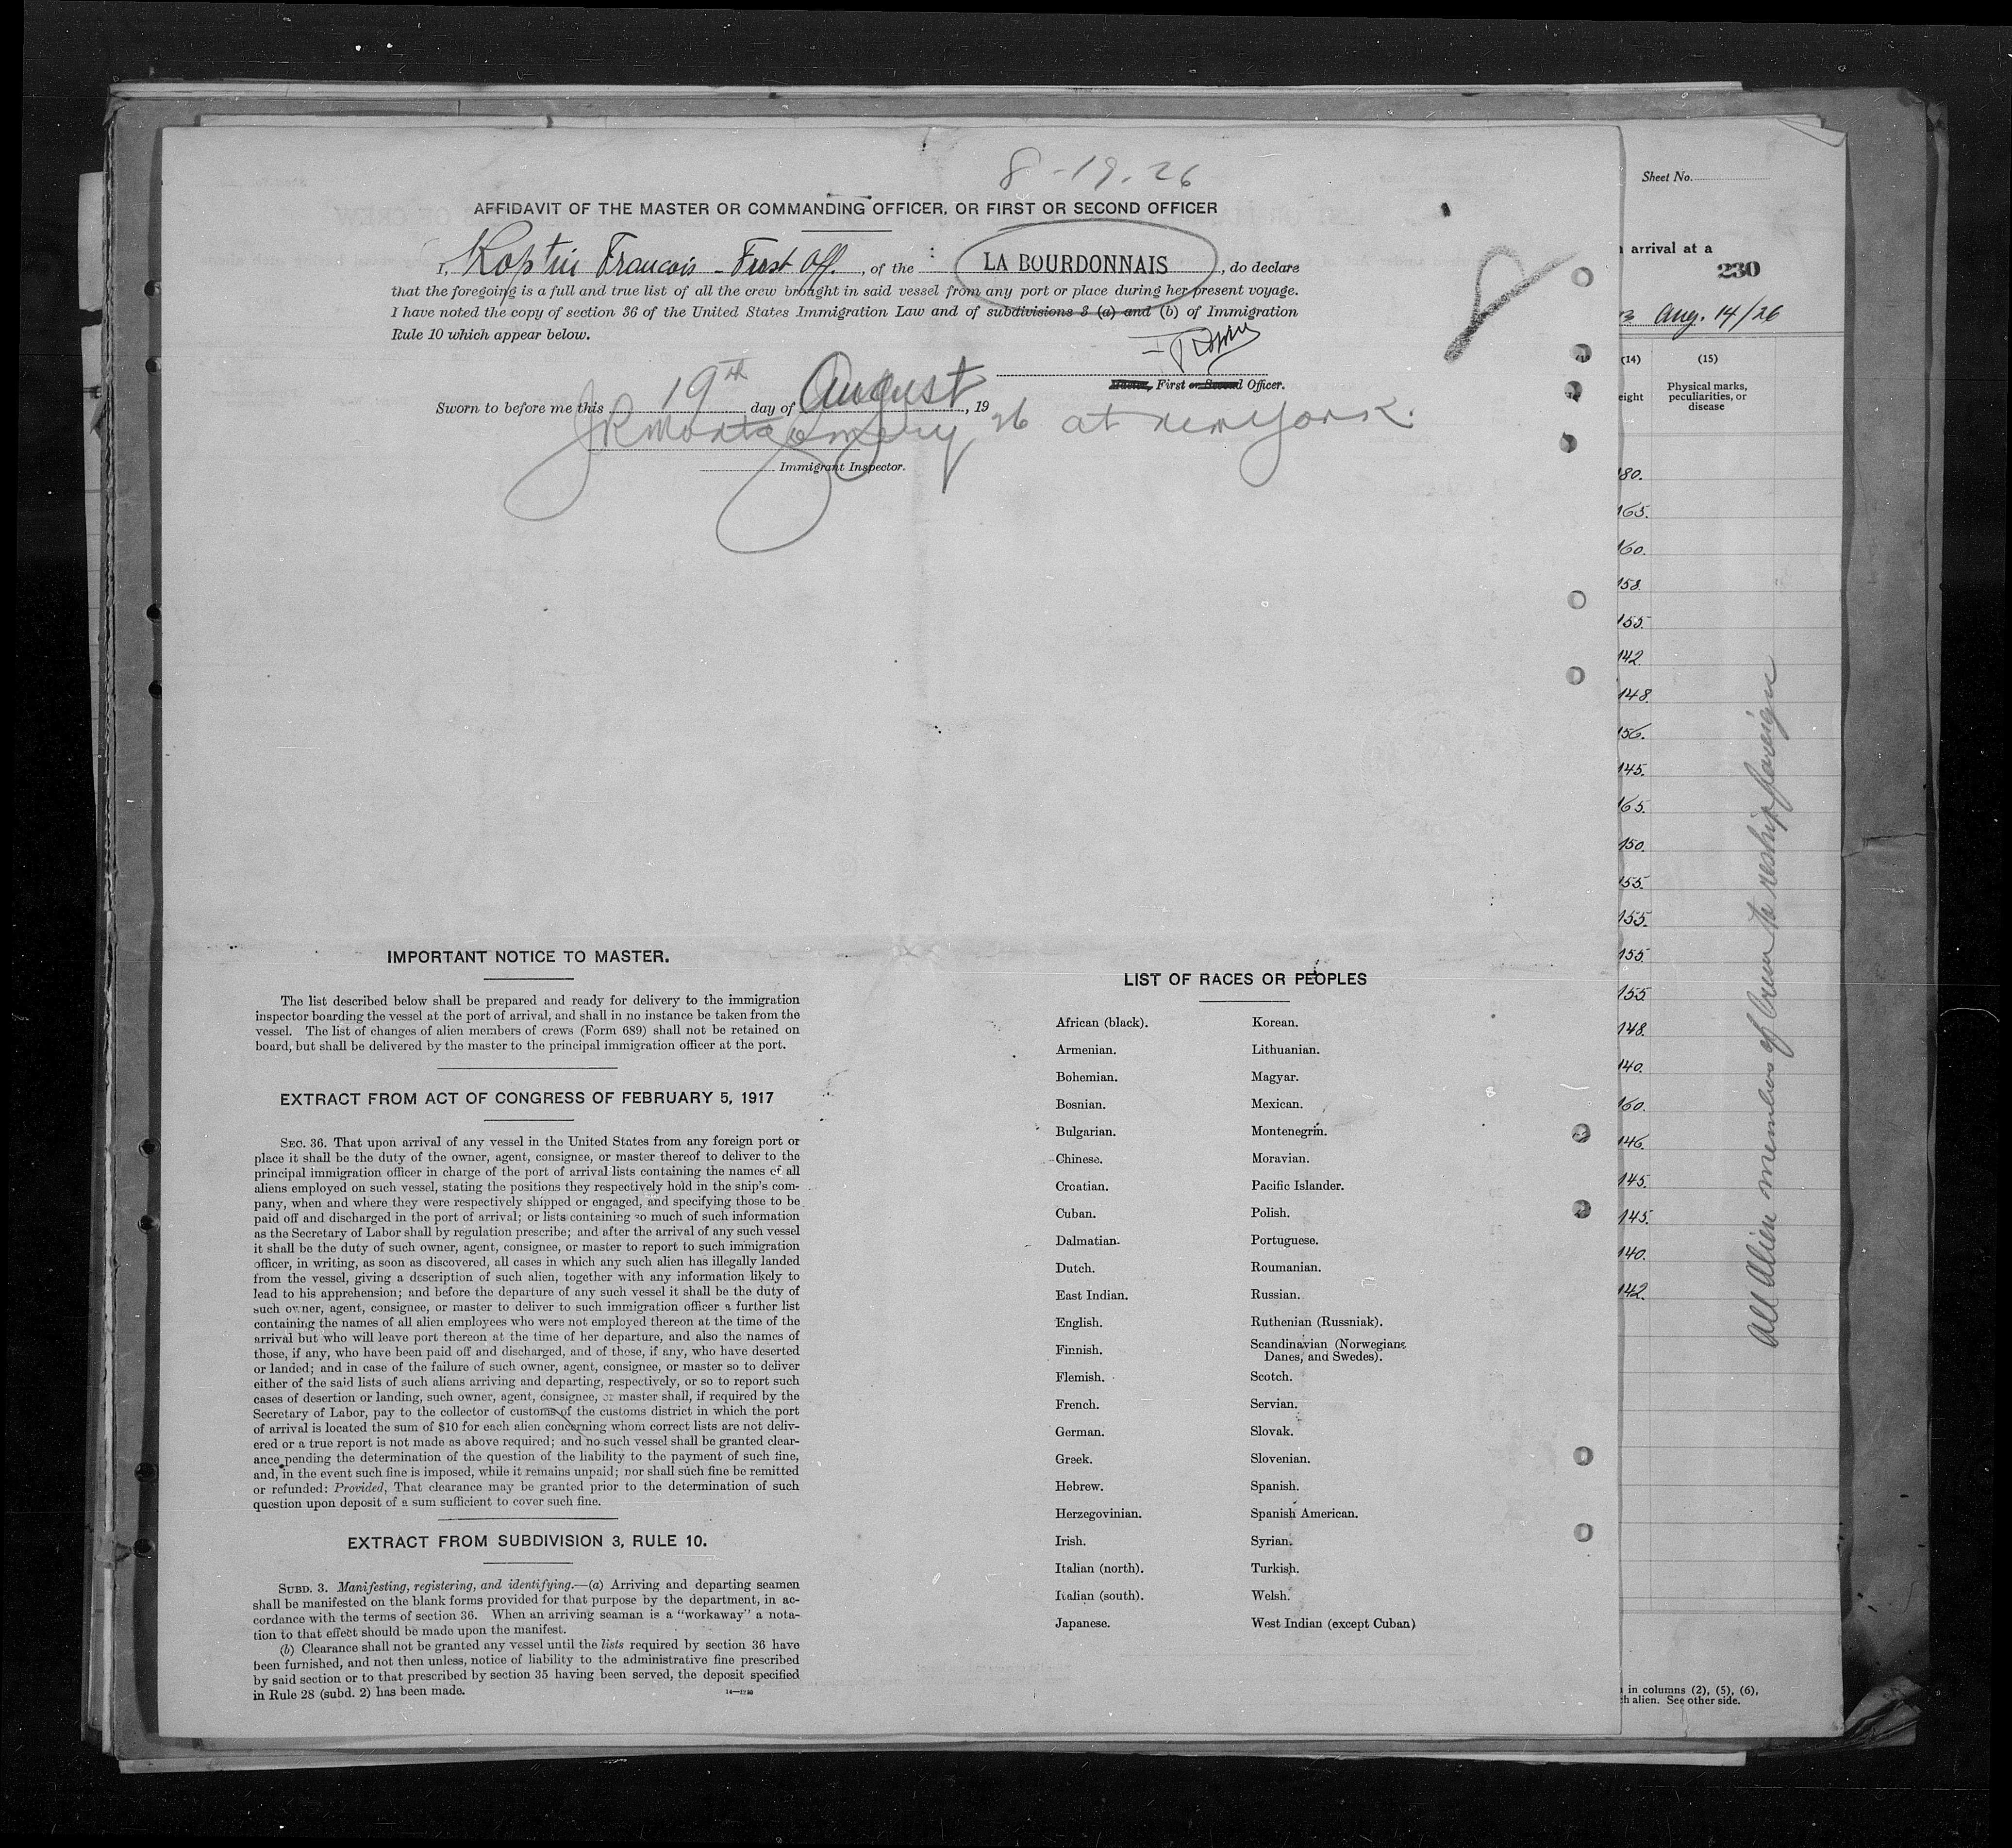 8-19.26
AFFIDAVIT OF THE MASTER OR COMMANDING OFFICER, OR FIRST OR SECOND OFFICER
I, Francois - First Off., of the LA BOURDONNAIS, do declare
that the foregoing is a full and true list of all the crew brought in said vessel from any port or place during her present voyage.
I have noted the copy of section 36 of the United States Immigration Law and of subdivisions 3 (a) and (b) of Immigration
Rule 10 which appear below.
Master, First or Second Officer.
Sworn to before me this 19th day of August, 19
JRMontgomery 26 at New York.
Immigrant Inspector.
IMPORTANT NOTICE TO MASTER.
The list described below shall be prepared and ready for delivery to the immigration
inspector boarding the vessel at the port of arrival, and shall in no instance be taken from the
vessel. The list of changes of alien members of crews (Form 689) shall not be retained on
board, but shall be delivered by the master to the principal immigration officer at the port.
EXTRACT FROM ACT OF CONGRESS OF FEBRUARY 5, 1917
SEC. 36. That upon arrival of any vessel in the United States from any foreign port or
place it shall be the duty of the owner, agent, consignee, or master thereof to deliver to the
principal immigration officer in charge of the port of arrival lists containing the names of all
aliens employed on such vessel, stating the positions they respectively hold in the ship's com-
pany, when and where they were respectively shipped or engaged, and specifying those to be
paid off and discharged in the port of arrival; or lists containing so much of such information
as the Secretary of Labor shall by regulation prescribe; and after the arrival of any such vessel
it shall be the duty of such owner, agent, consignee, or master to report to such immigration
officer, in writing, as soon as discovered, all cases in which any such alien has illegally landed
from the vessel, giving a description of such alien, together with any information likely to
lead to his apprehension; and before the departure of any such vessel it shall be the duty of
such owner, agent, consignee, or master to deliver to such immigration officer a further list
containing the names of all alien employees who were not employed thereon at the time of the
arrival but who will leave port thereon at the time of her departure, and also the names of
those, if any, who have been paid off and discharged, and of those, if any, who have deserted
or landed; and in case of the failure of such owner, agent, consignee, or master so to deliver
either of the said lists of such aliens arriving and departing, respectively, or so to report such
cases of desertion or landing, such owner, agent, consignee, or master shall, if required by the
Secretary of Labor, pay to the collector of customs of the customs district in which the port
of arrival is located the sum of $10 for each alien concerning whom correct lists are not deliv-
ered or a true report is not made as above required; and no such vessel shall be granted clear-
ance pending the determination of the question of the liability to the payment of such fine,
and, in the event such fine is imposed, while it remains unpaid; nor shall such fine be remitted
or refunded: Provided, That clearance may be granted prior to the determination of such
question upon deposit of a sum sufficient to cover such fine.
EXTRACT FROM SUBDIVISION 3, RULE 10.
SUBD. 3. Manifesting, registering, and identifying.—(a) Arriving and departing seamen
shall be manifested on the blank forms provided for that purpose by the department, in ac-
cordance with the terms of section 36. When an arriving seaman is a "workaway" a nota-
tion to that effect should be made upon the manifest.
(b) Clearance shall not be granted any vessel until the lists required by section 36 have
been furnished, and not then unless, notice of liability to the administrative fine prescribed
by said section or to that prescribed by section 35 having been served, the deposit specified
in Rule 28 (subd. 2) has been made.
LIST OF RACES OR PEOPLES
African (black).
Armenian.
Bohemian.
Bosnian.
Bulgarian.
Chinese.
Croatian.
Cuban.
Dalmatian.
Dutch.
East Indian.
English.
Finnish.
Flemish.
French.
German.
Greek.
Hebrew.
Herzegovinian.
Irish.
Italian (north).
Italian (south).
Japanese.
Korean.
Lithuanian.
Magyar.
Mexican.
Montenegrin.
Moravian.
Pacific Islander.
Polish.
Portuguese.
Roumanian.
Russian.
Ruthenian (Russniak).
Scandinavian (Norwegians
Danes, and Swedes).
Scotch.
Servian.
Slovak.
Slovenian.
Spanish.
Spanish American.
Syrian.
Turkish.
Welsh.
West Indian (except Cuban)
Sheet No.
arrival at a
230
Aug. 14/26
(14)
(15)
eight
Physical marks,
peculiarities, or
disease
180.
165.
160.
158.
155.
142.
148.
156.
145.
165.
150.
155.
155.
155.
155.
148.
140.
160.
146.
145.
145.
140.
142.
All Alien members of Crew to reship foreign
in columns (2), (5), (6),
ch alien. See other side.